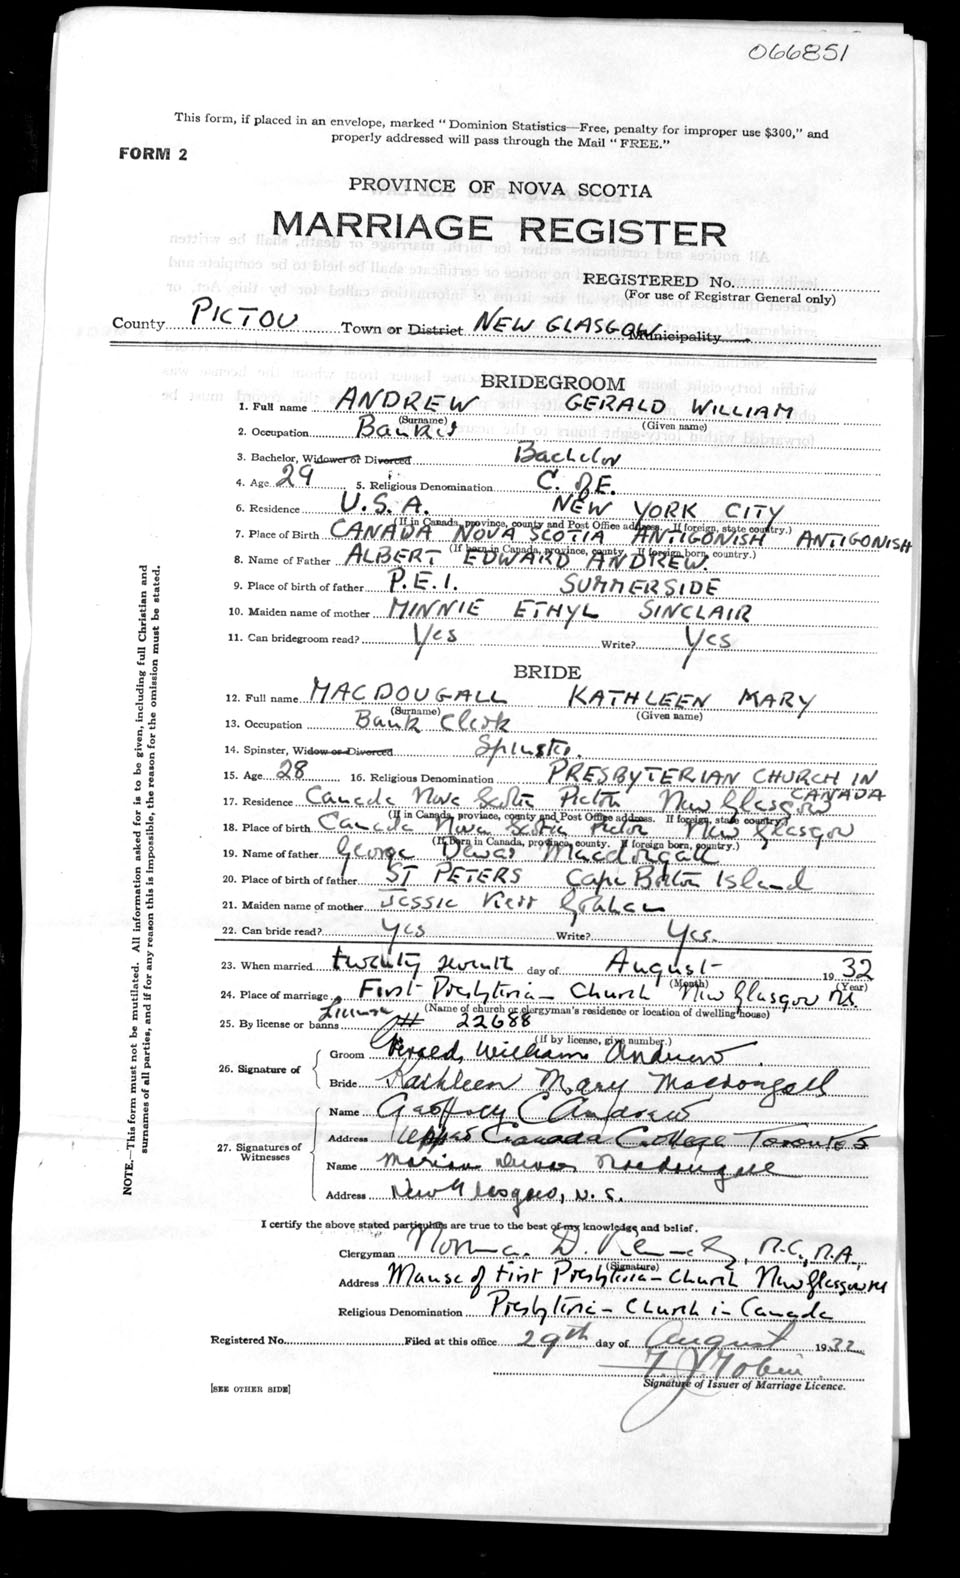 066851
This form, if placed in an envelope, marked "Dominion Statistics—Free, penalty for improper use $300," and
properly addressed will pass through the Mail "FREE."
FORM 2
PROVINCE OF NOVA SCOTIA
MARRIAGE REGISTER
REGISTERED No.
(For use of Registrar General only)
County PICTOU Town or District NEW GLASGOW Municipality
BRIDEGROOM
1. Full name ANDREW GERALD WILLIAM
(Surname) (Given name)
2. Occupation Banker
3. Bachelor, Widower or Divorced Bachelor
4. Age 29 5. Religious Denomination C. of E.
6. Residence U.S.A. NEW YORK CITY
(If in Canada, province, county and Post Office address. If foreign, state country.)
7. Place of Birth CANADA NOVA SCOTIA ANTIGONISH ANTIGONISH
(If born in Canada, province, county. If foreign born, country.)
8. Name of Father ALBERT EDWARD ANDREW.
9. Place of birth of father P.E.I. SUMMERSIDE
10. Maiden name of mother MINNIE ETHYL SINCLAIR
11. Can bridegroom read? Yes Write? Yes
BRIDE
12. Full name MACDOUGALL KATHLEEN MARY
(Surname) (Given name)
13. Occupation Bank Clerk
14. Spinster, Widow or Divorced Spinster.
15. Age 28 16. Religious Denomination PRESBYTERIAN CHURCH IN
CANADA
17. Residence Canada Nova Scotia Pictou New Glasgow
(If in Canada, province, county and Post Office address. If foreign, state country)
18. Place of birth Canada Nova Scotia Pictou New Glasgow
(If born in Canada, province, county. If foreign born, country.)
19. Name of father George Dewar Macdougall
20. Place of birth of father ST PETERS Cape Breton Island
21. Maiden name of mother Jessie Kerr Graham
22. Can bride read? Yes Write? Yes.
23. When married twenty seventh day of August 1932
(Month) (Year)
24. Place of marriage First Presbyterian Church New Glasgow N.S.
(Name of church or clergyman's residence or location of dwelling house)
License
25. By license or banns # 22688
(if by license, give number.)
26. Signature of
Groom Gerald William Andrew.
Bride Kathleen Mary Macdougall
27. Signatures of Witnesses
Name Geoffrey C Andrew
Address Upper Canada College Toronto 5
Name Marion Dewar Macdougall
Address New Glasgow, N.S.
I certify the above stated particulars are true to the best of my knowledge and belief.
Clergyman Norman D.
(Signature)
Address Manse of First Presbyterian Church New Glasgow NS
Religious Denomination Presbyterian Church in Canada
Registered No. Filed at this office 29th day of August 1932
Signature of Issuer of Marriage Licence.
[SEE OTHER SIDE]
NOTE.—This form must not be mutilated. All information asked for is to be given, including full Christian and
surnames of all parties, and if for any reason this is impossible, the reason for the omission must be stated.